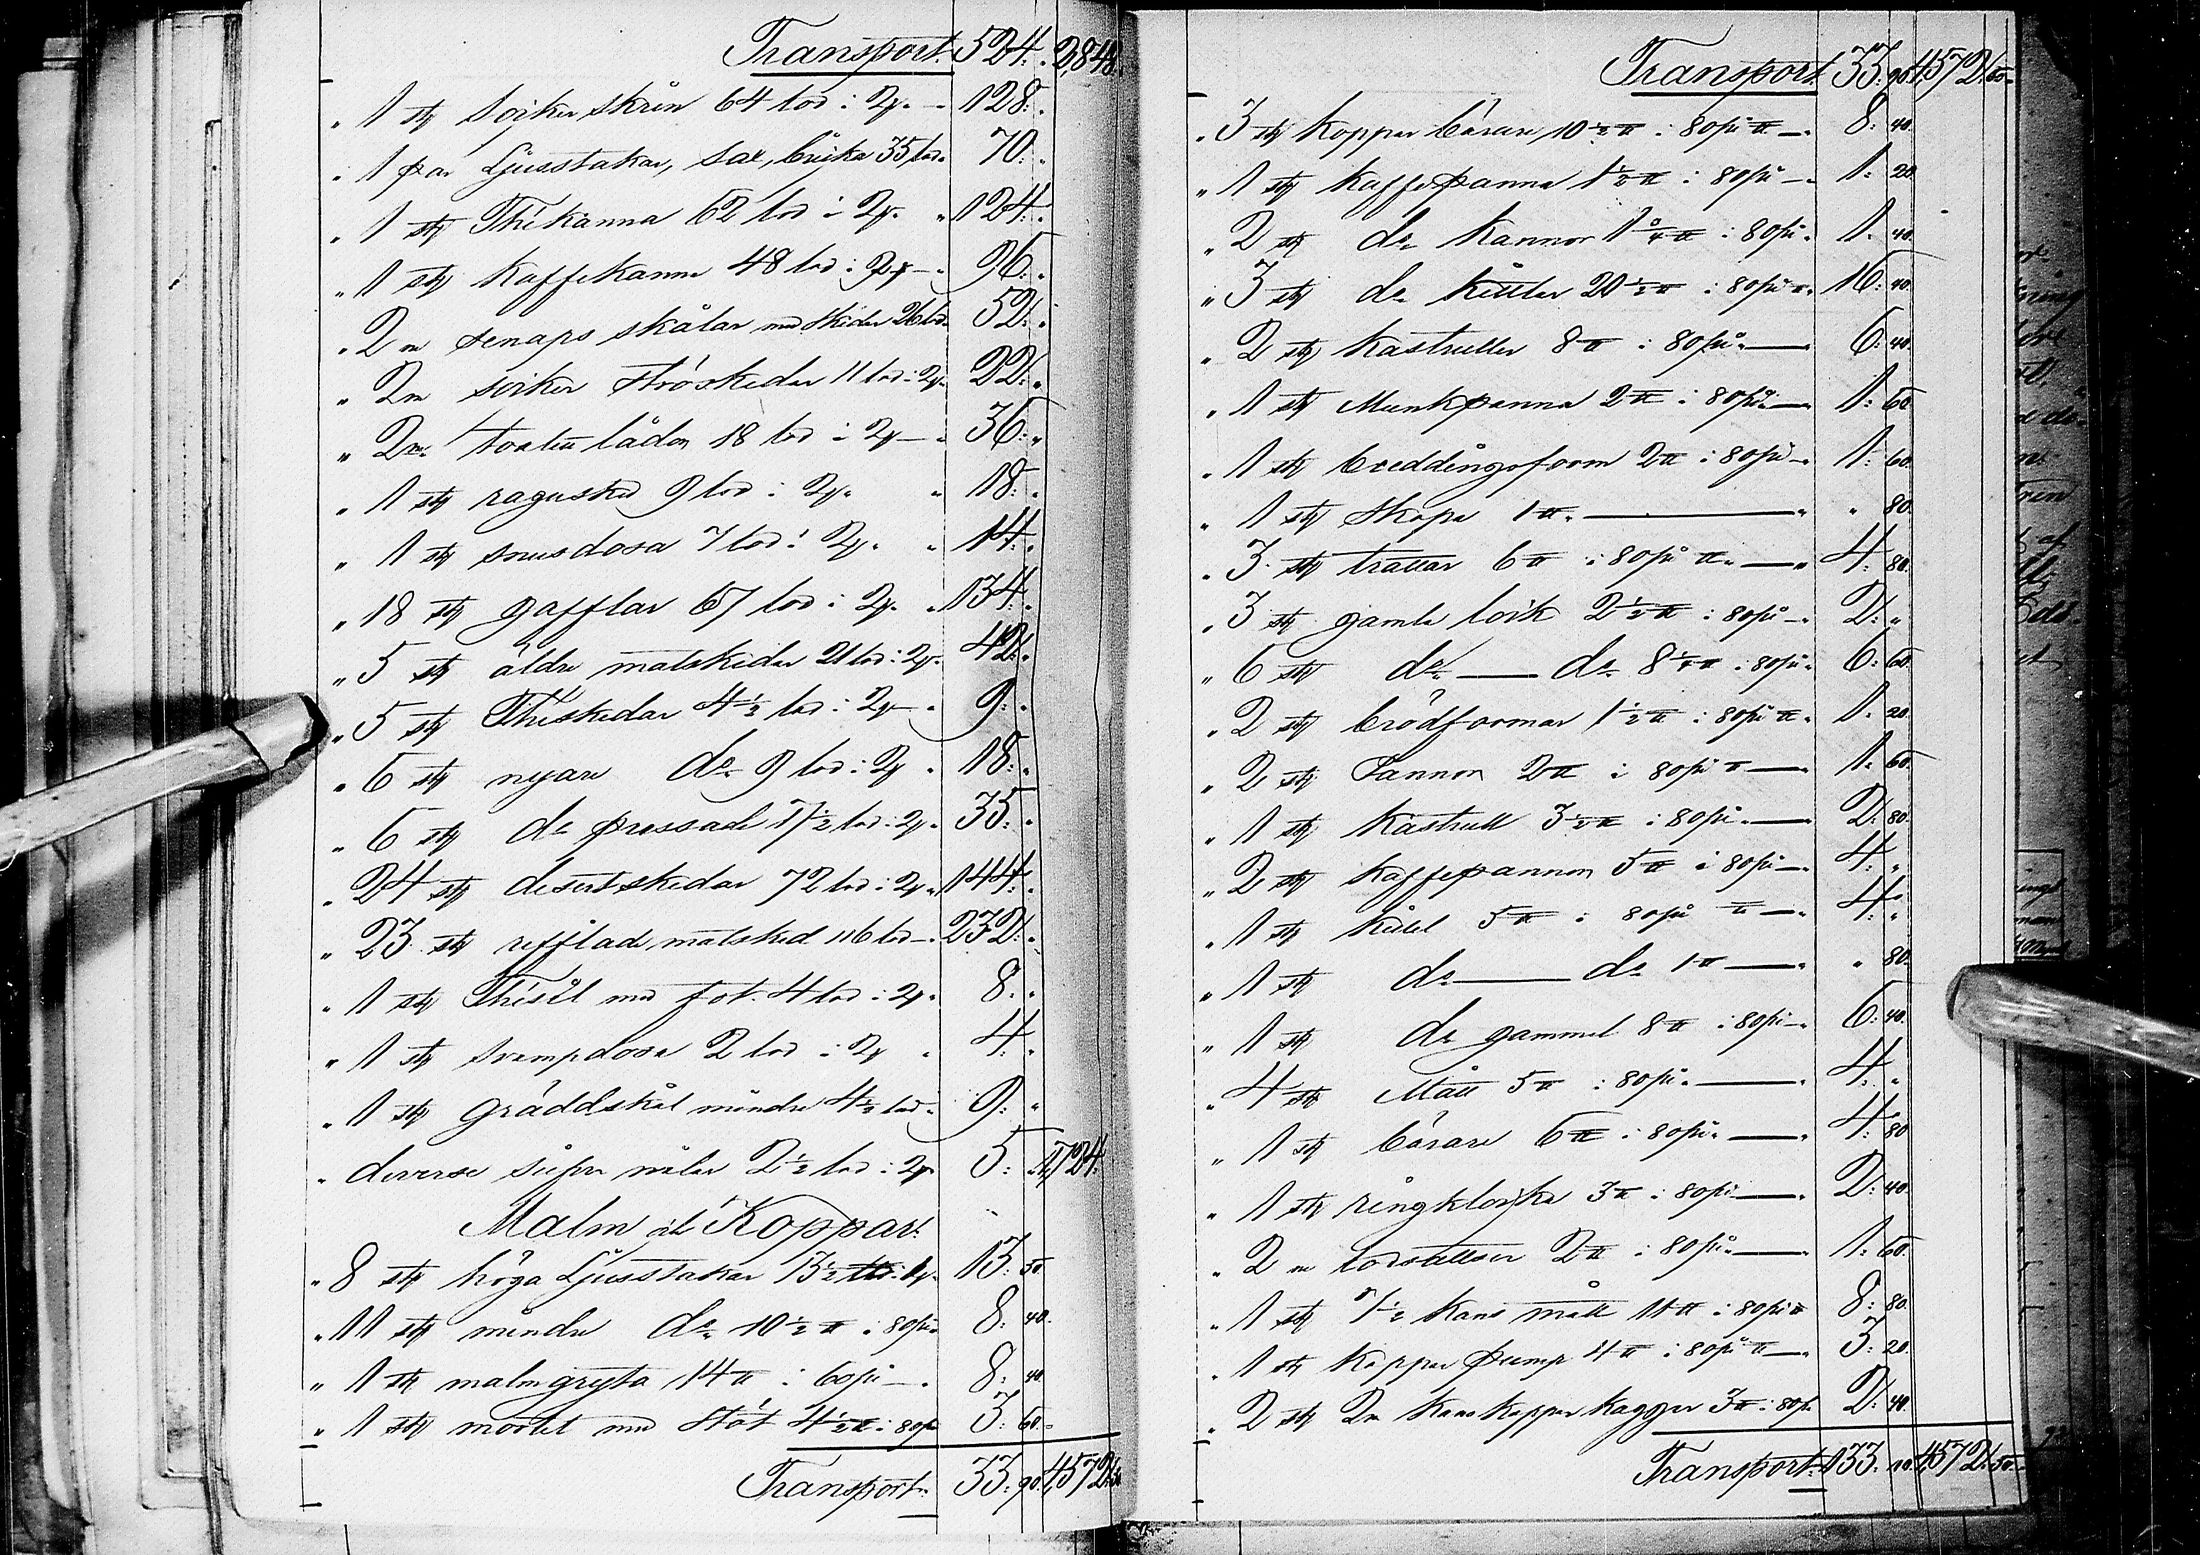 Transport. 524: „ 2,848.
„ 1 st socker skrin 64 lod : 2 „ 128: „
„ 1 par Ljusstakar, sax, bricka 35 lod. 70: „
„ 1 st Thékanna 62 lod : 2 „ 124: „
„ 1 st Kaffekanna 48 lod : 2 „ 96: „
„ 2 „ senaps skålar med skedar 26 lod. 52: „
„ 2 „ socker ströskedar 11 lod : 2 „ 22: „
„ 2 lådor 18 lod : 2 „ 36: „
„ 1 st ragusked 9 lod : 2 „ 18: „
„ 1 st snusdosa 7 lod : 2 „ 14: „
„ 18 st gafflar 67 lod : 2 „ 134: „
„ 5 st äldre matskedar 21 lod : 2 „ 42: „
„ 5 st Théskedar 4 1/2 lod : 2 „ 9: „
„ 6 st nyare do 9 lod : 2 „ 18: „
„ 6 st do pressade 17 1/2 lod : 2 „ 35: „
„ 24 st desertskedar 72 lod : 2 „ 144: „
„ 23 st refflade matsked 116 lod 232: „
„ 1 st Thésil med fot. 4 lod : 2 „ 8: „
„ 1 st svampdosa 2 lod : 2 „ 4: „
„ 1 st gräddskål mindre 4 1/2 lod „ 9: „
„ diverse nålar 2 1/2 lod : 2 „ 5: „ 1,724.
Malm och Koppar.
„ 8 st höga Ljusstakar 13 1/2 13: 50
„ 11 st mindre do 10 1/2 ℔ : 80 8: 40.
„ 1 st malmgryta 14 ℔ : 60 8: 40
„ 1 st mortel med stöt 4 1/2 ℔ : 80 3: 60
Transport. 33: 90. 4,572:
Transport 33: 90 4572: 50
„ 3 st Koppar bäcare 10 1/2 ℔ : 80 ℔ 8: 40.
„ 1 st Kaffepanna 1 1/2 ℔ : 80 1: 20
„ 2 st do Kannor 1 3/4 ℔ : 80 1: 40
„ 3 st do kittlar 20 1/2 ℔ : 80 16: 40
„ 2 st Kastruller 8 ℔ : 80 6: 40
„ 1 st Munkpanna 2 ℔ : 80 1: 60
„ 1 st breddingsform 2 ℔ : 80 1: 60.
„ 1 st skopa 1 ℔ „ 80.
„ 3 st trattar 6 ℔ : 80 ℔ 4: 80.
„ 3 st gamla lock 2 1/2 ℔ : 80 2: „
„ 6 st do do 8 1/4 ℔ : 80 6: 60
„ 2 st brödformar 1 1/2 ℔ : 80 ℔ 1: 20
„ 2 st Pannor 2 ℔ : 80 ℔ 1: 60.
„ 1 st Kastrull 3 1/2 ℔ : 80 2: 80
„ 2 st Kaffepannor 5 ℔ : 80 4: „
„ 1 st kittel 5 ℔ : 80 ℔ 4: „
„ 1 st do do 1 ℔ „ 80.
„ 1 st do gammal 8 ℔ : 80 6: 40
„ 4 st Mått 5 ℔ : 80 4: „
„ 1 st bäcare 6 ℔ : 80 4: 80
„ 1 st ringklocka 3 ℔ : 80 2: 40.
„ 2 „ 2 ℔ : 80 1: 60.
„ 1 st 1/2 Kans mått 11 ℔ : 80 8: 80.
„ 1 st koppar pump 4 ℔ : 80 ℔ 3: 20.
„ 2 st 2 Kans koppar kaggar 3 ℔ : 80 2: 40
Transport. 133: 10. 4,572: 50